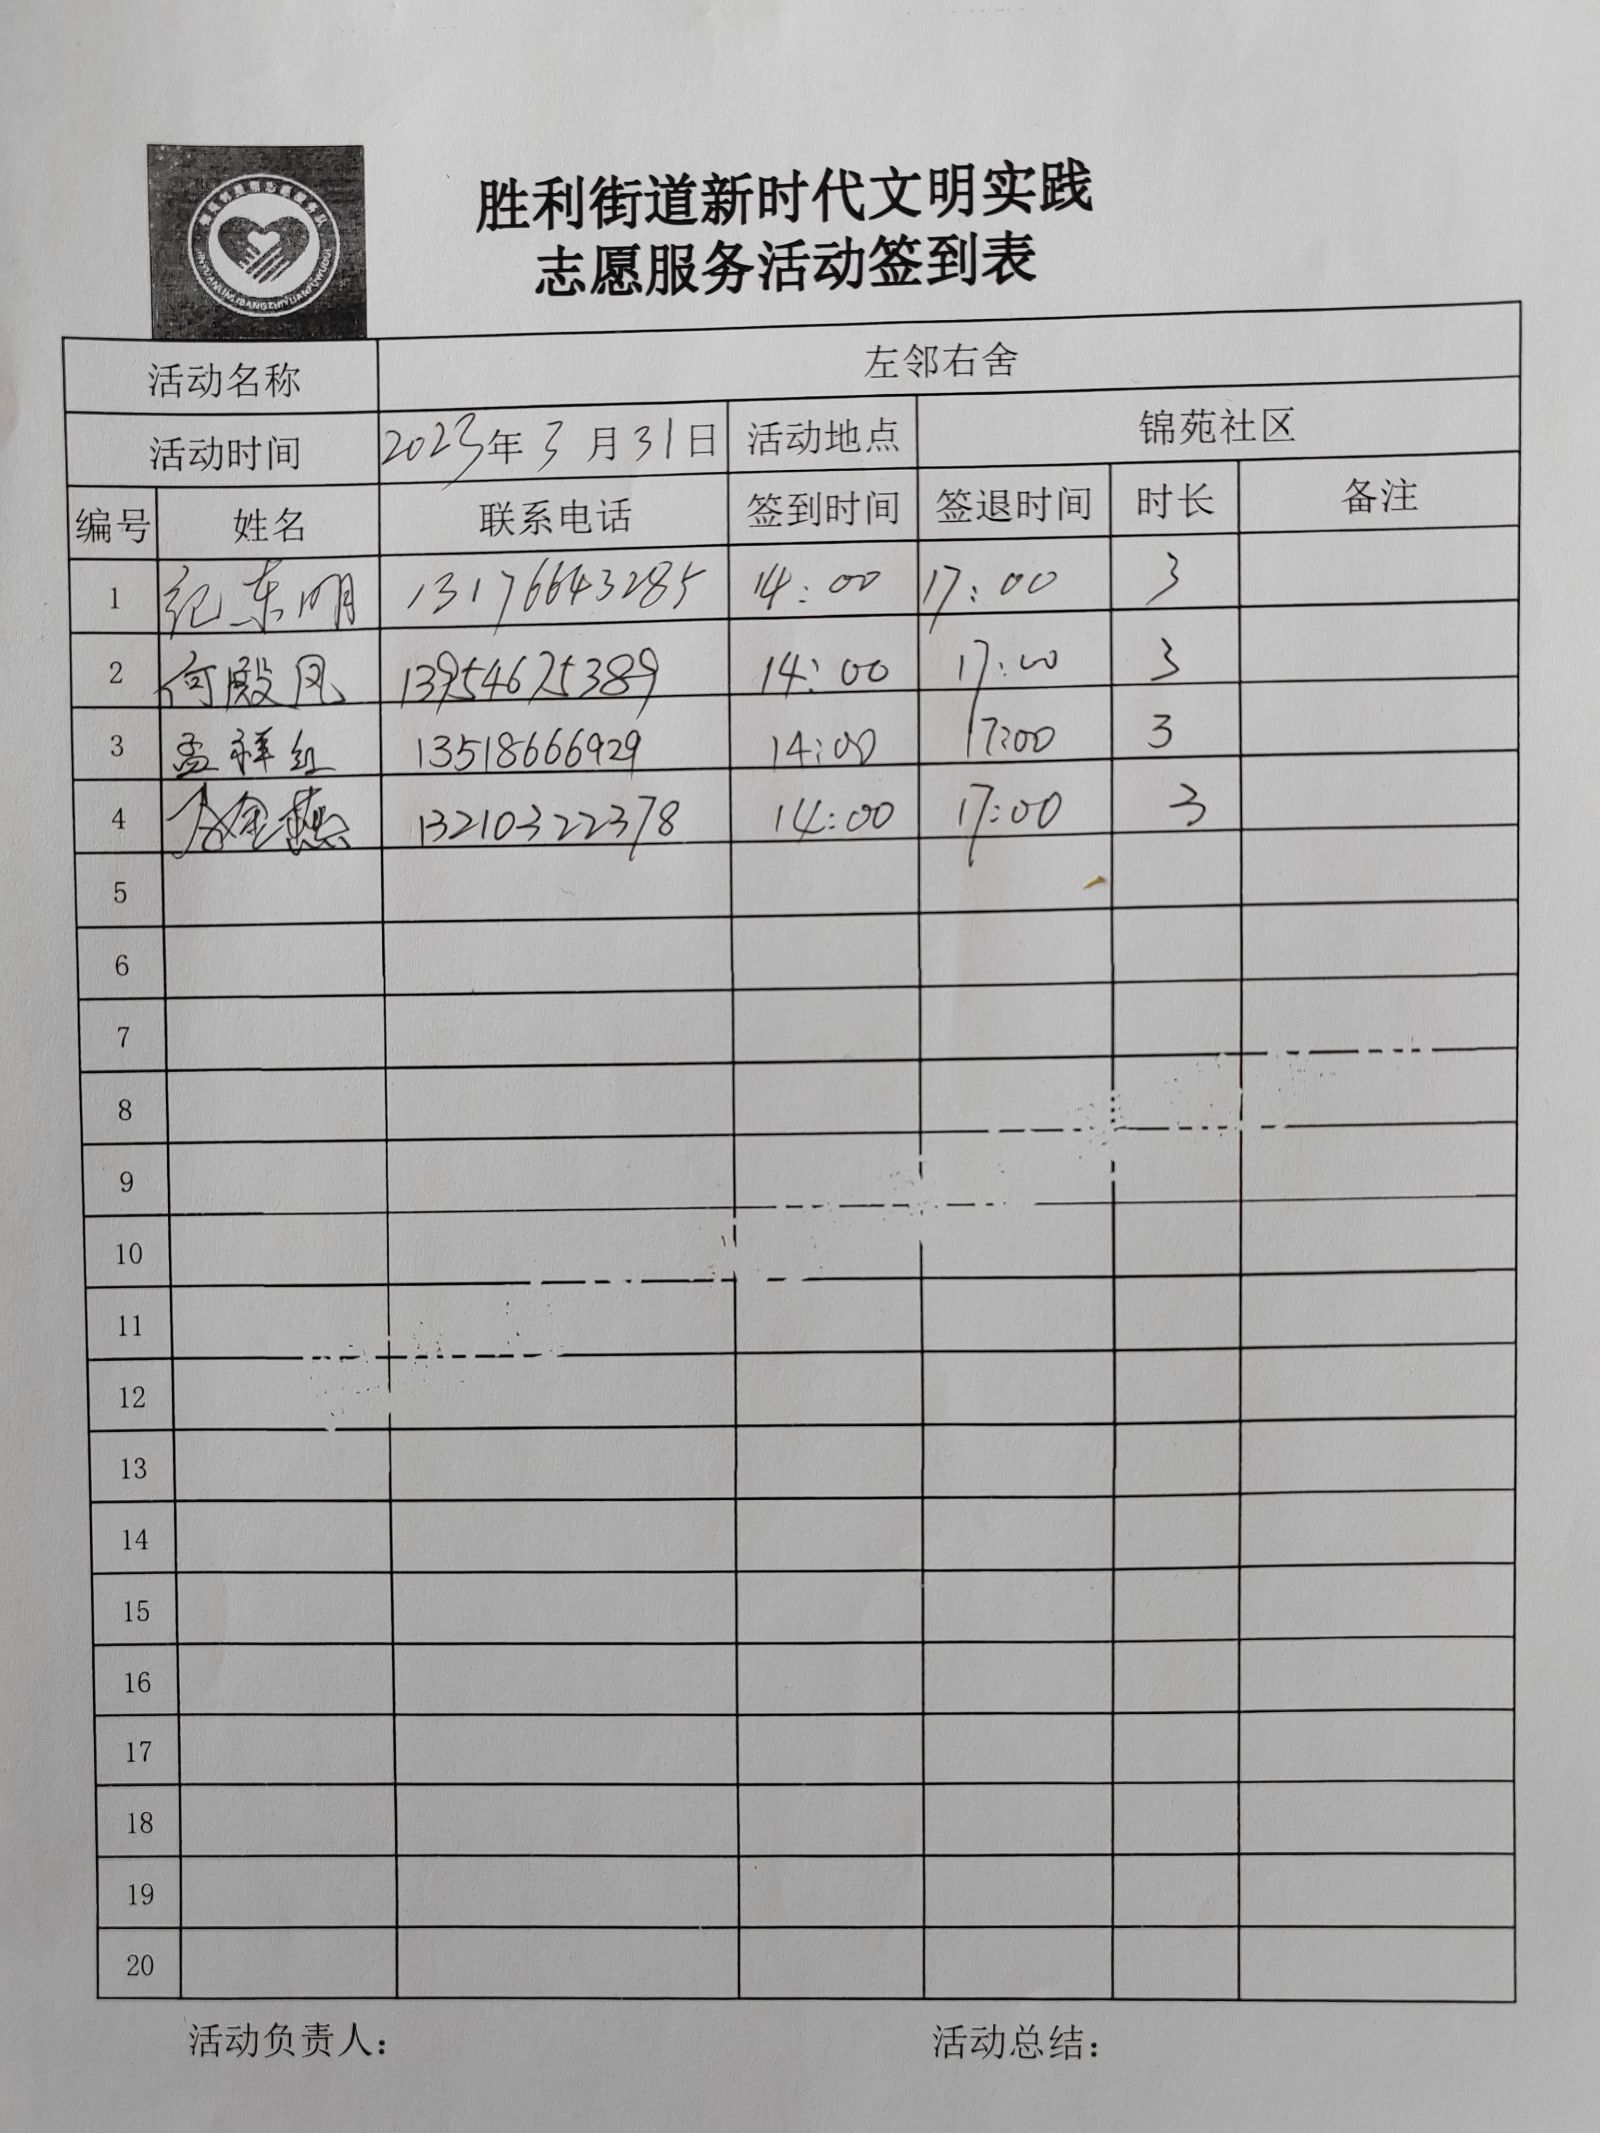 胜利街道新时代文明实践
志愿服务活动签到表
活动名称 左邻右舍
活动时间 2023年3月31日 活动地点 锦苑社区
编号 姓名 联系电话 签到时间 签退时间 时长 备注
1 纪东明 13176643285 14:00 17:00 3
2 何殿凤 13954675389 14:00 17:00 3
3 孟祥红 13518666929 14:00 17:00 3
4 13210322378 14:00 17:00 3
5
6
7
8
9
10
11
12
13
14
15
16
17
18
19
20
活动负责人： 活动总结：